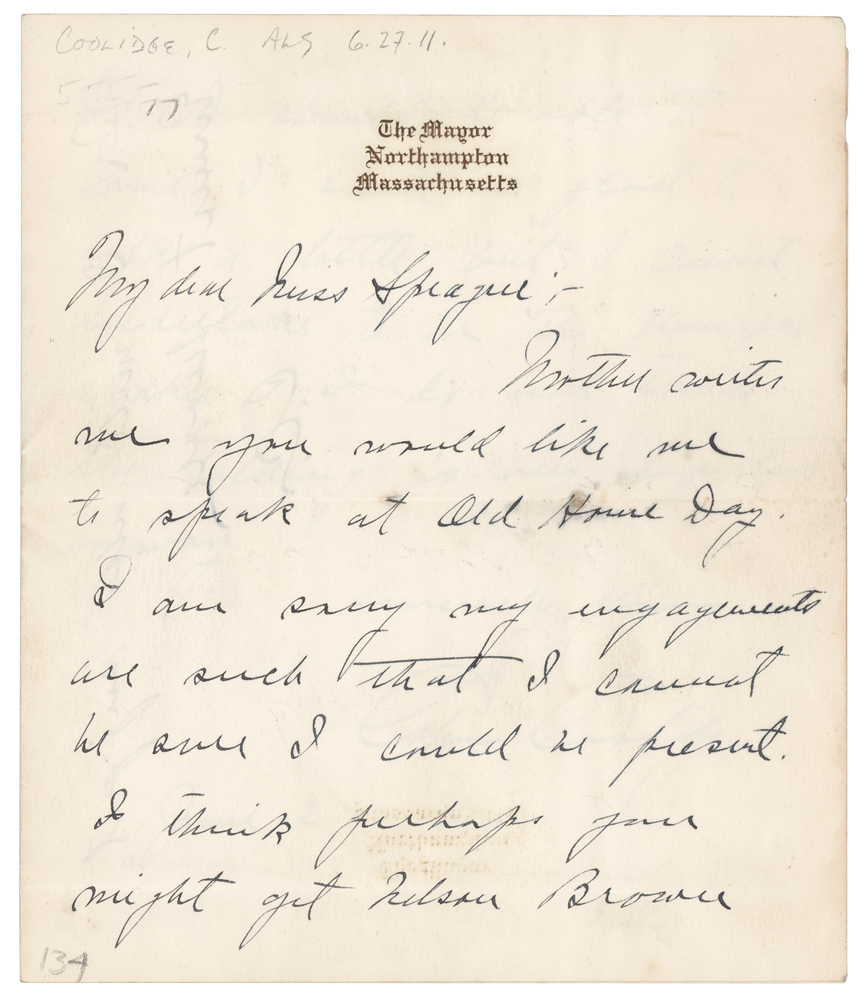 COOLIDGE, C. ALS 6.27.11.
77
The Mayor
Northampton
Massachusetts
My dear Miss Sprague:-
Mother writes
me you would like me
to speak at Old Home Day.
I am sorry my engagements
are such that I cannot
be sure I could be present.
I think perhaps you
might get Nelson Brown
134